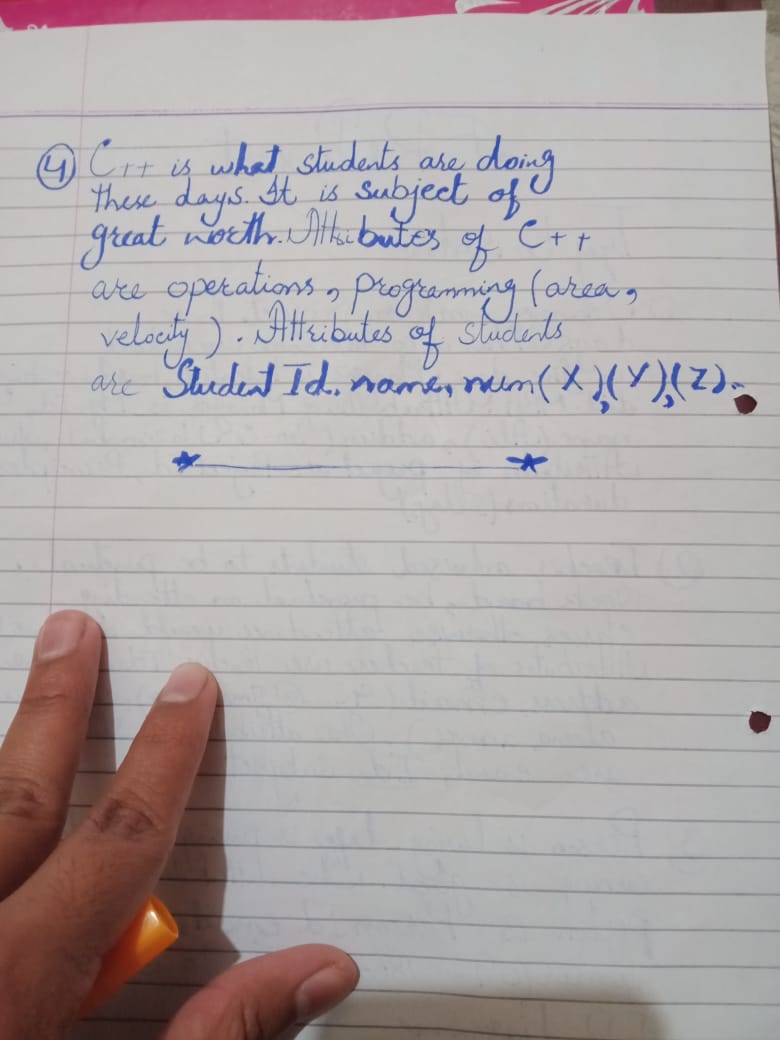 ④ C++ is what students are doing
these days. It is subject of
great worth. Attributes of C++
are operations, programming (area,
velocity). Attributes of students
are Student Id. name, num(X),(Y),(Z).